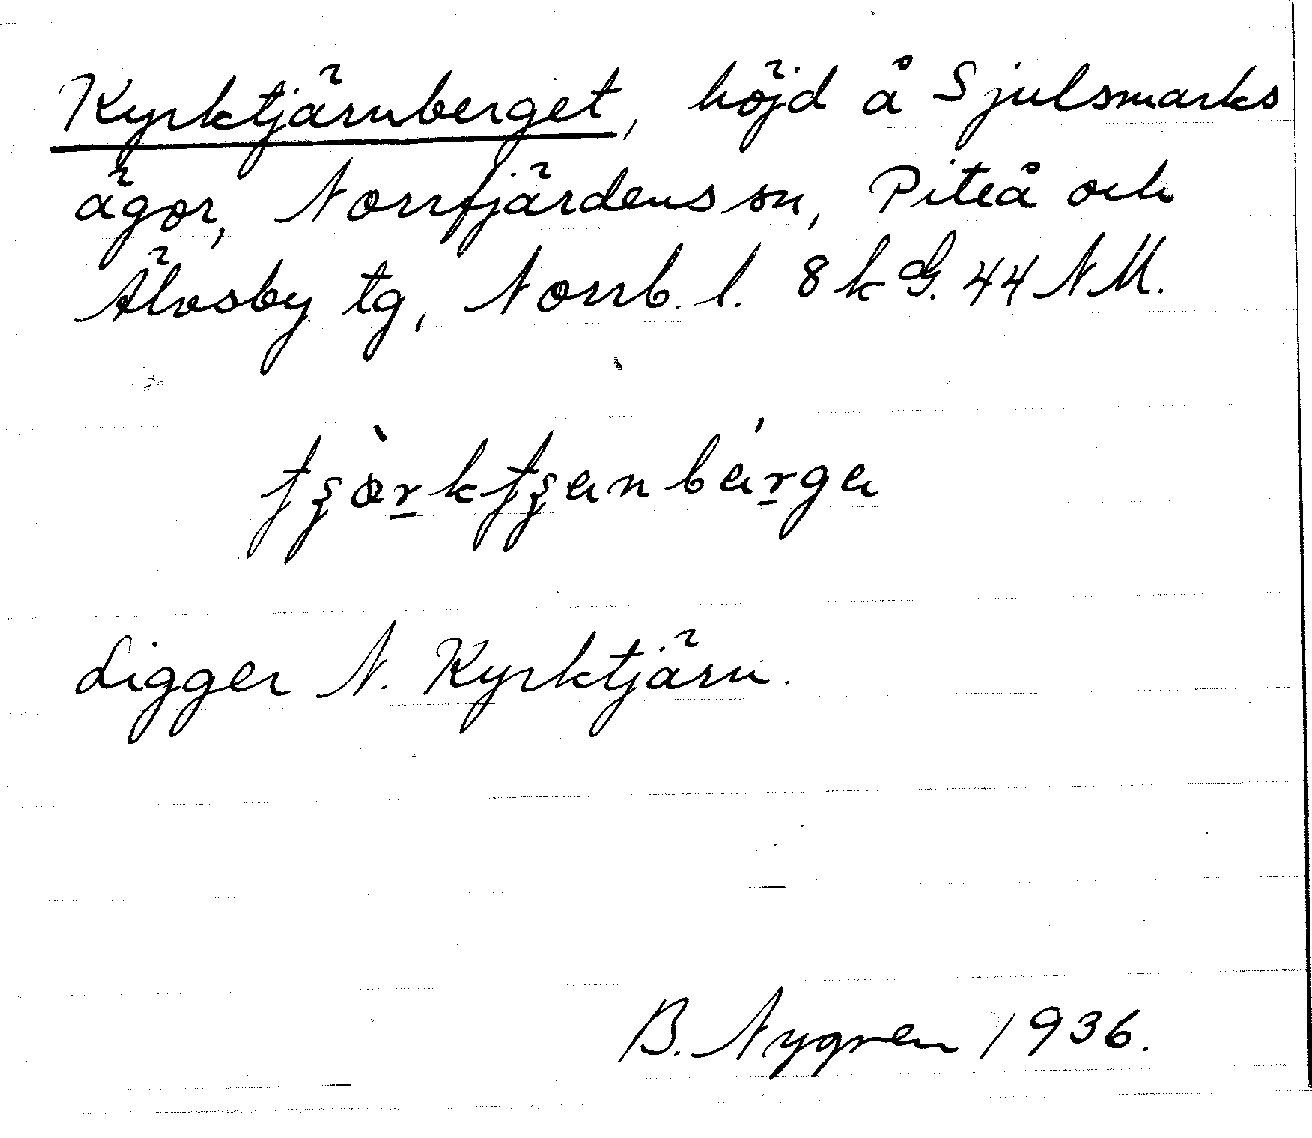 Kyrktjärnberget, höjd å Sjulsmarks
ägor, Norrfjärdens sn, Piteå och
Älvsby tg, Norrb. l. 8 k G. 44 NM.
Ligger N. Kyrktjärn.
B. Nygren 1936.